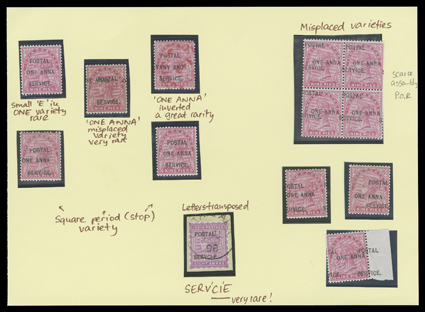 Misplaced varieties
POSTAL
ONE ANNA
SERVICE.
POSTAL
SERVICE.
POSTAL
SERVICE.
POSTAL
ONE ANNA
scarce
P.O.R
small 'E' in
ONE variety
rare
'ONE ANNA'
misplaced
variety
very rare
'ONE ANNA'
inverted
a great rarity
POSTAL
ONE ANNA
SERVICE.
POSTAL
ONE ANNA
SERVICE.
Square period (stop)
variety
Letters transposed
POSTAL
SERVCIE
POSTAL
ONE ANNA
POSTAL
ONE ANNA
POSTAL
ONE ANNA
SERVICE.
SERVCIE
very rare!